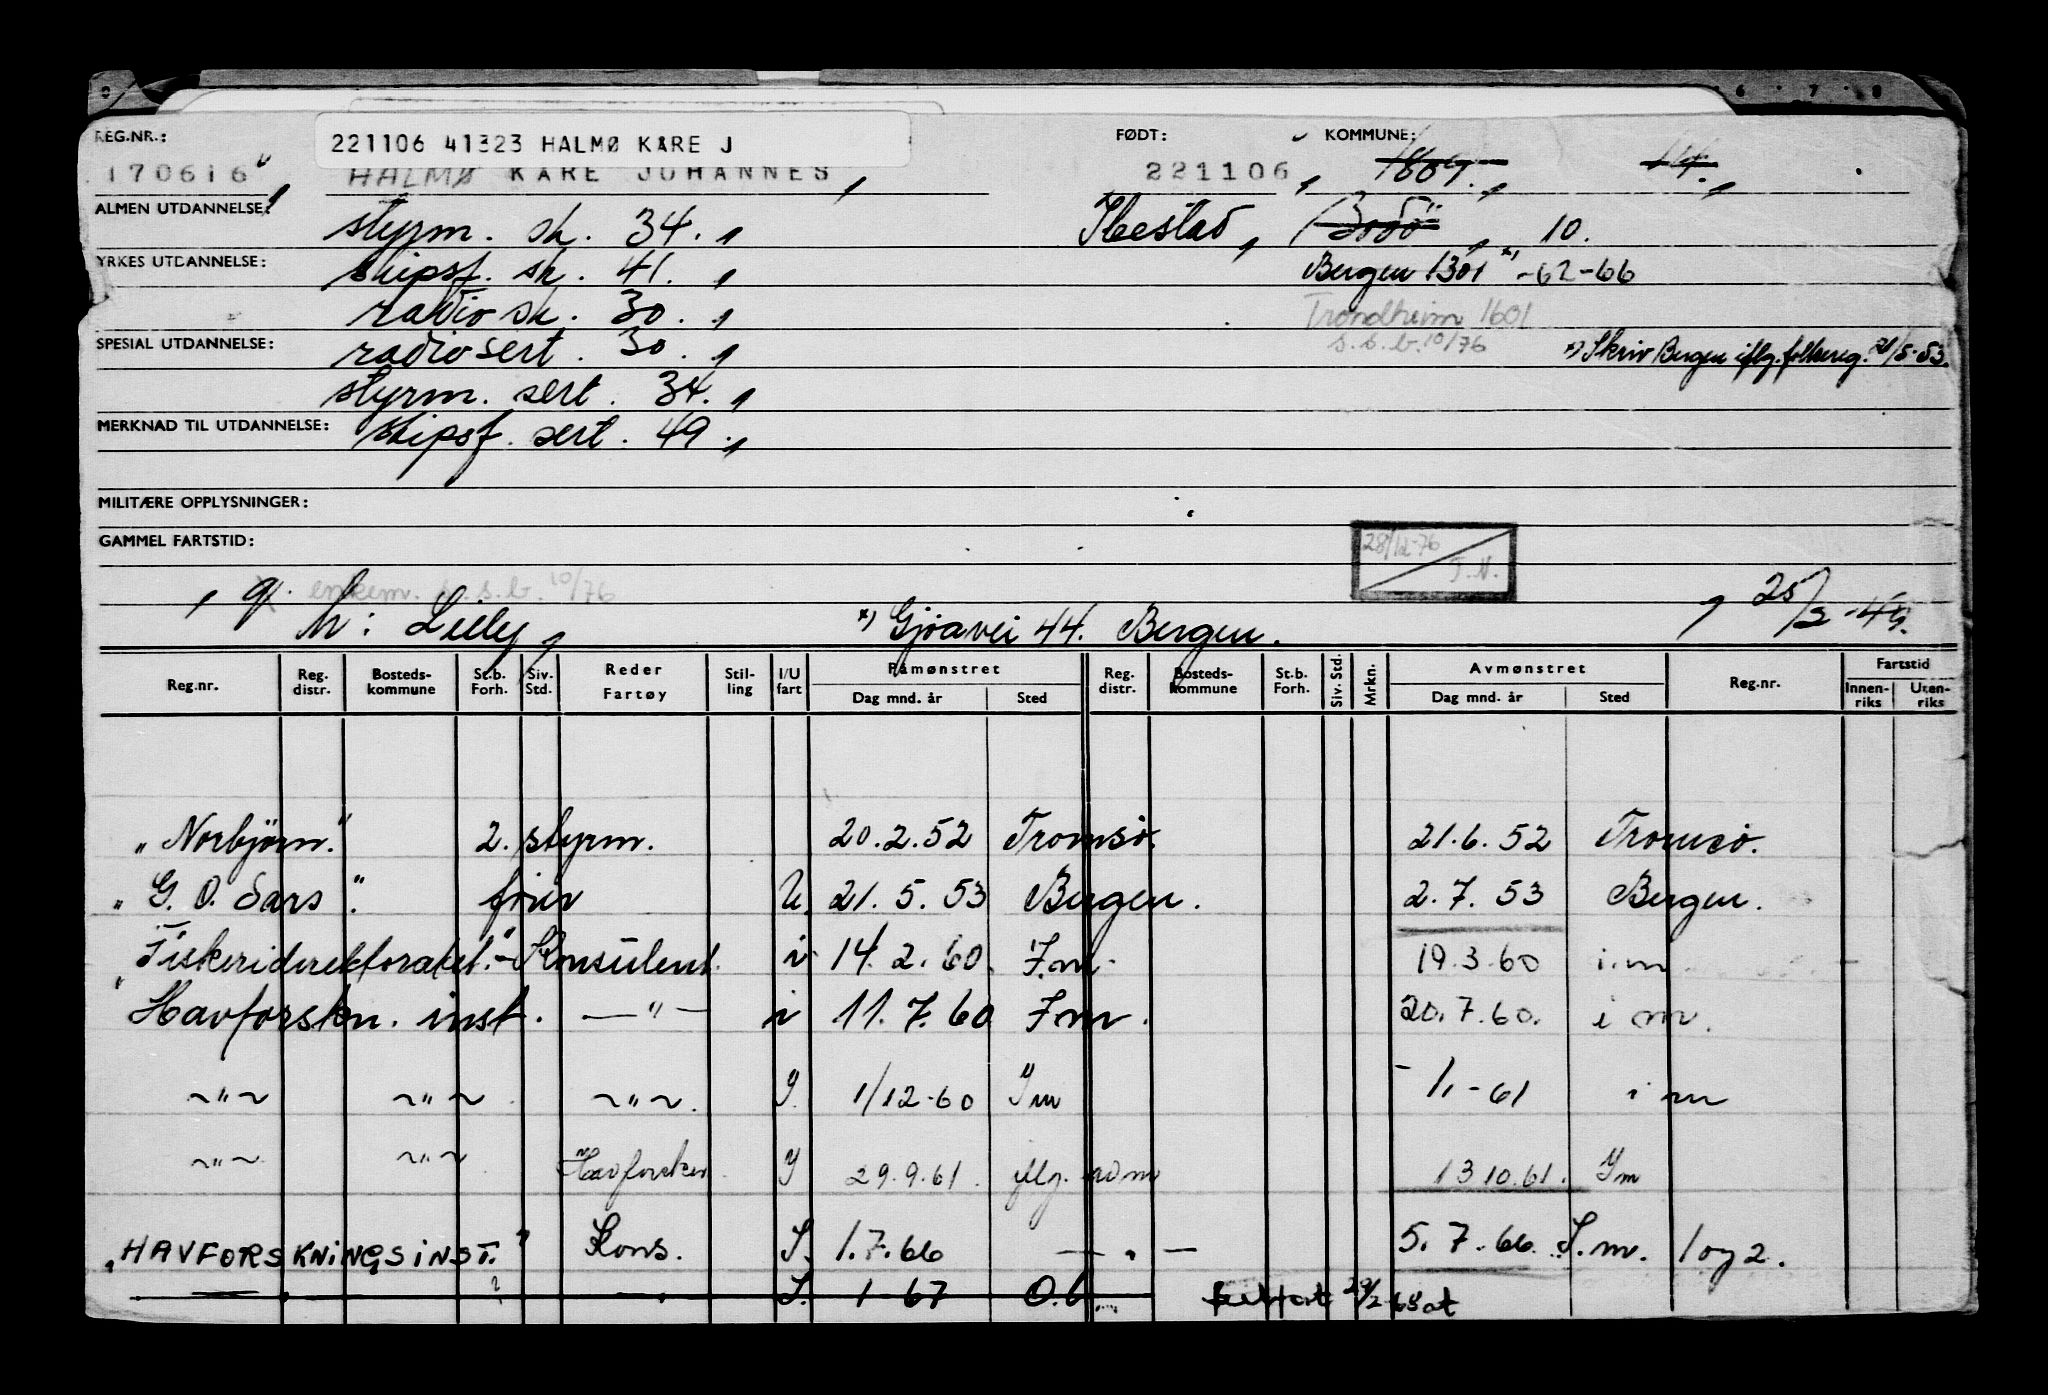 REG.NR.: 221106 41323 HALMØ KARE J FØDT: KOMMUNE:
170616 HALMØ KARE JOHANNES, 221106, 1804.,
ALMEN UTDANNELSE: styrm. sk. 34., Ibestad, Bodö, 10.
YRKES UTDANNELSE: skipsf. sk. 41., Bergen 1301 x) -62-66
radio sk. 30., Trondheim 1601
SPESIAL UTDANNELSE: radiosert. 30., s.s.b. 10/76 x) Skriv Bergen iflg. folkereg. 21/5-53.
styrm. sert. 34.,
MERKNAD TIL UTDANNELSE: skipsf. sert. 49.,
MILITÆRE OPPLYSNINGER:
GAMMEL FARTSTID: 28/12-76 T.H.
, g. enkem. s.s.b. 10/76
h: Lilly, x) Gjøavei 44. Bergen. , 25/2-49.
Reg.nr. Reg. distr. Bosteds-kommune St.b. Forh. Siv. Std. Reder Fartøy Stil-ling I/U fart Påmønstret Dag mnd. år Sted Reg. distr. Bosteds-kommune St.b. Forh. Siv. Std. Mrkn. Avmønstret Dag mnd. år Sted Reg.nr. Fartstid Innen-riks Uten-riks
„Norbjörn." 2. styrm. 20.2.52 Tromsö. 21.6.52 Tromsö.
„G. O. Sars". fører U. 21.5.53 Bergen. 2.7.53 Bergen.
„Fiskeridirektoratet." - Konsulent. i 14.2.60. I.m. 19.3.60 i.m.
Havforskn. inst. —"— i 11.7.60 I m. 20.7.60. i m.
~"~ ~"~ ~"~. I. 1/12-60 I m -/1-61 i m
~"~ ~"~ Havforsker I 29.9.61. iflg. adm 13 10.61. I m
„HAVFORSKNINGSINST." Kons. I. 1.7.66 — „ — 5.7.66. I.m. 1 og 2.
I. 1 67 O.b. 29/2 68